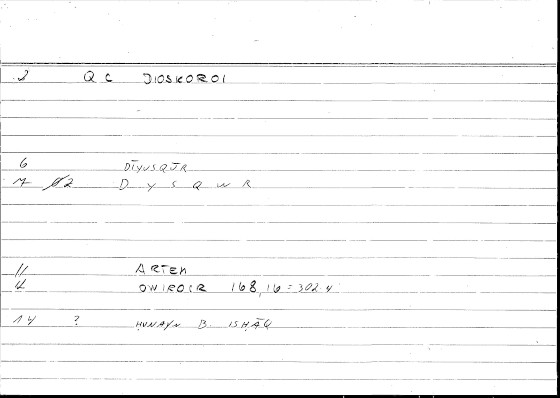 2 QC DIOSKOROI
6 DĪYUSQŪR
7 02 D Y S Q W R
11 ARTEM
12 OWIROCR 168,16 = 302 4
14 ? ḤUNAYN B. ISḤĀQ